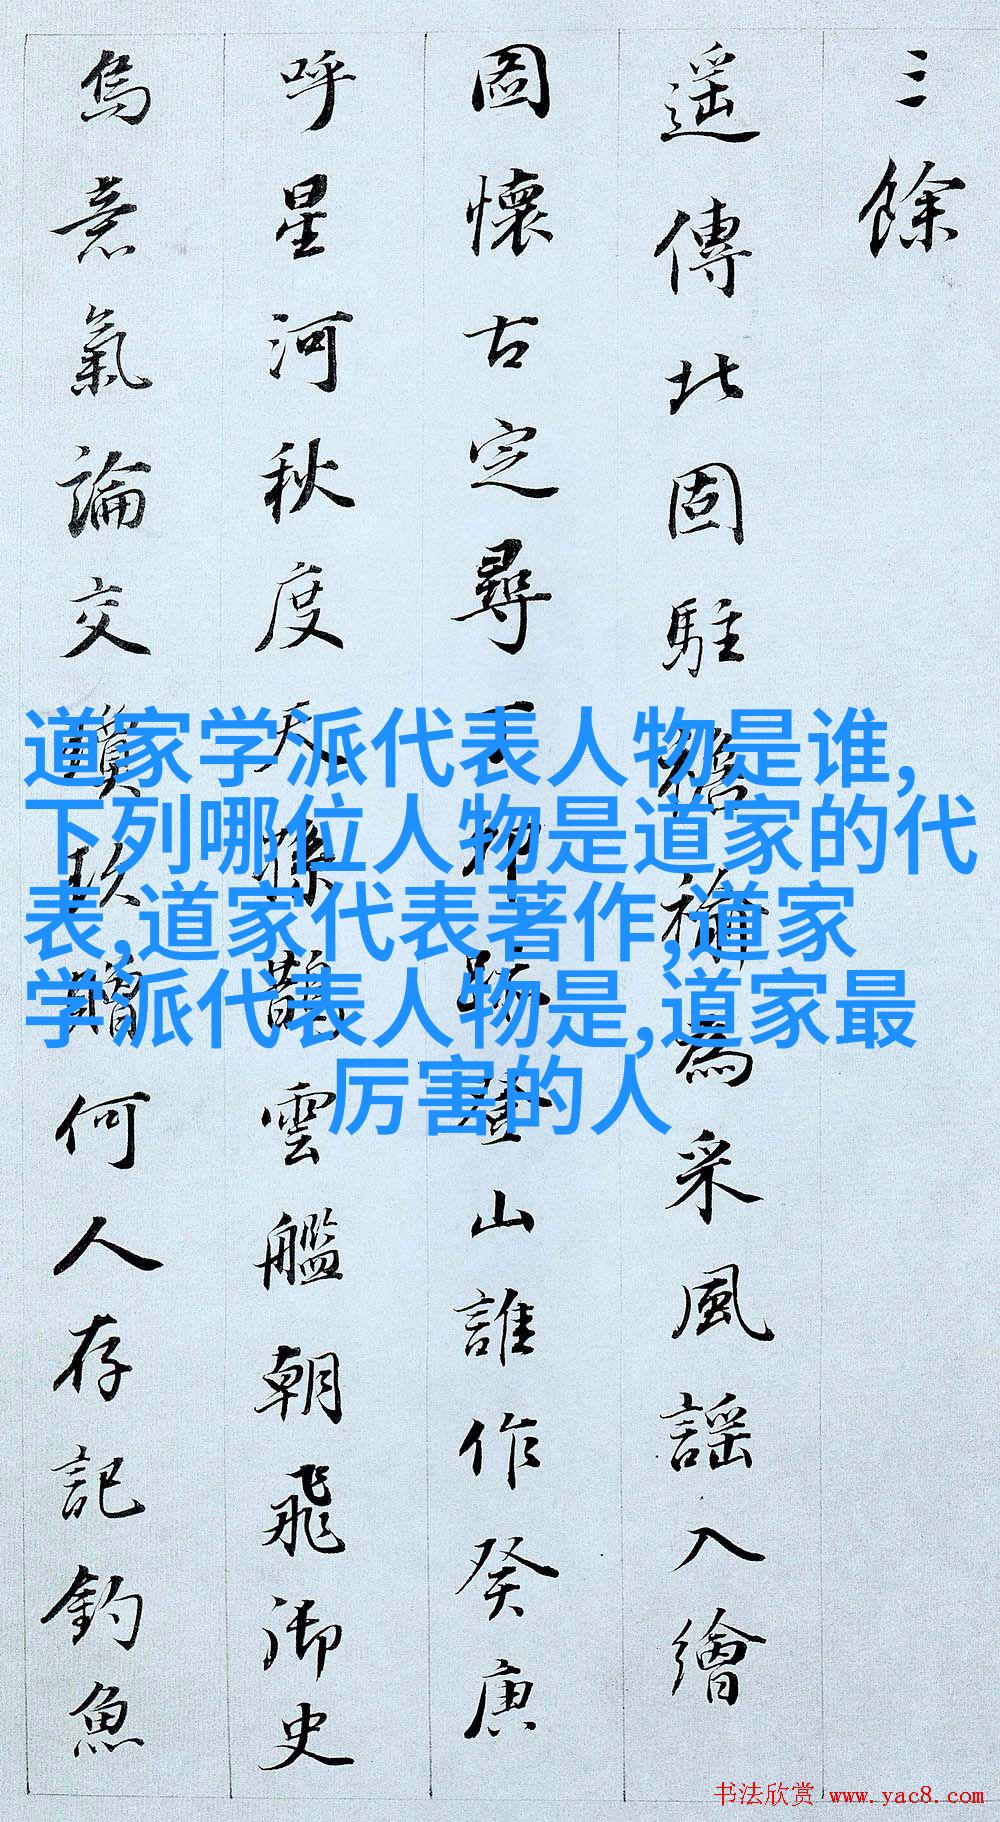 三餘
遥傳北固駐襜褕為采風謡入繪
圖懷古定尋丁卯跡登山誰作癸庚
呼星河秋度天孫鵲雲艦朝飛御史
烏意氣論交瓊玖贈何人存記釣魚
道家学派代表人物是谁,
下列哪位人物是道家的代
表,道家代表著作,道家
学派代表人物是,道家最
厉害的人
书法欣赏 www.yac8.com